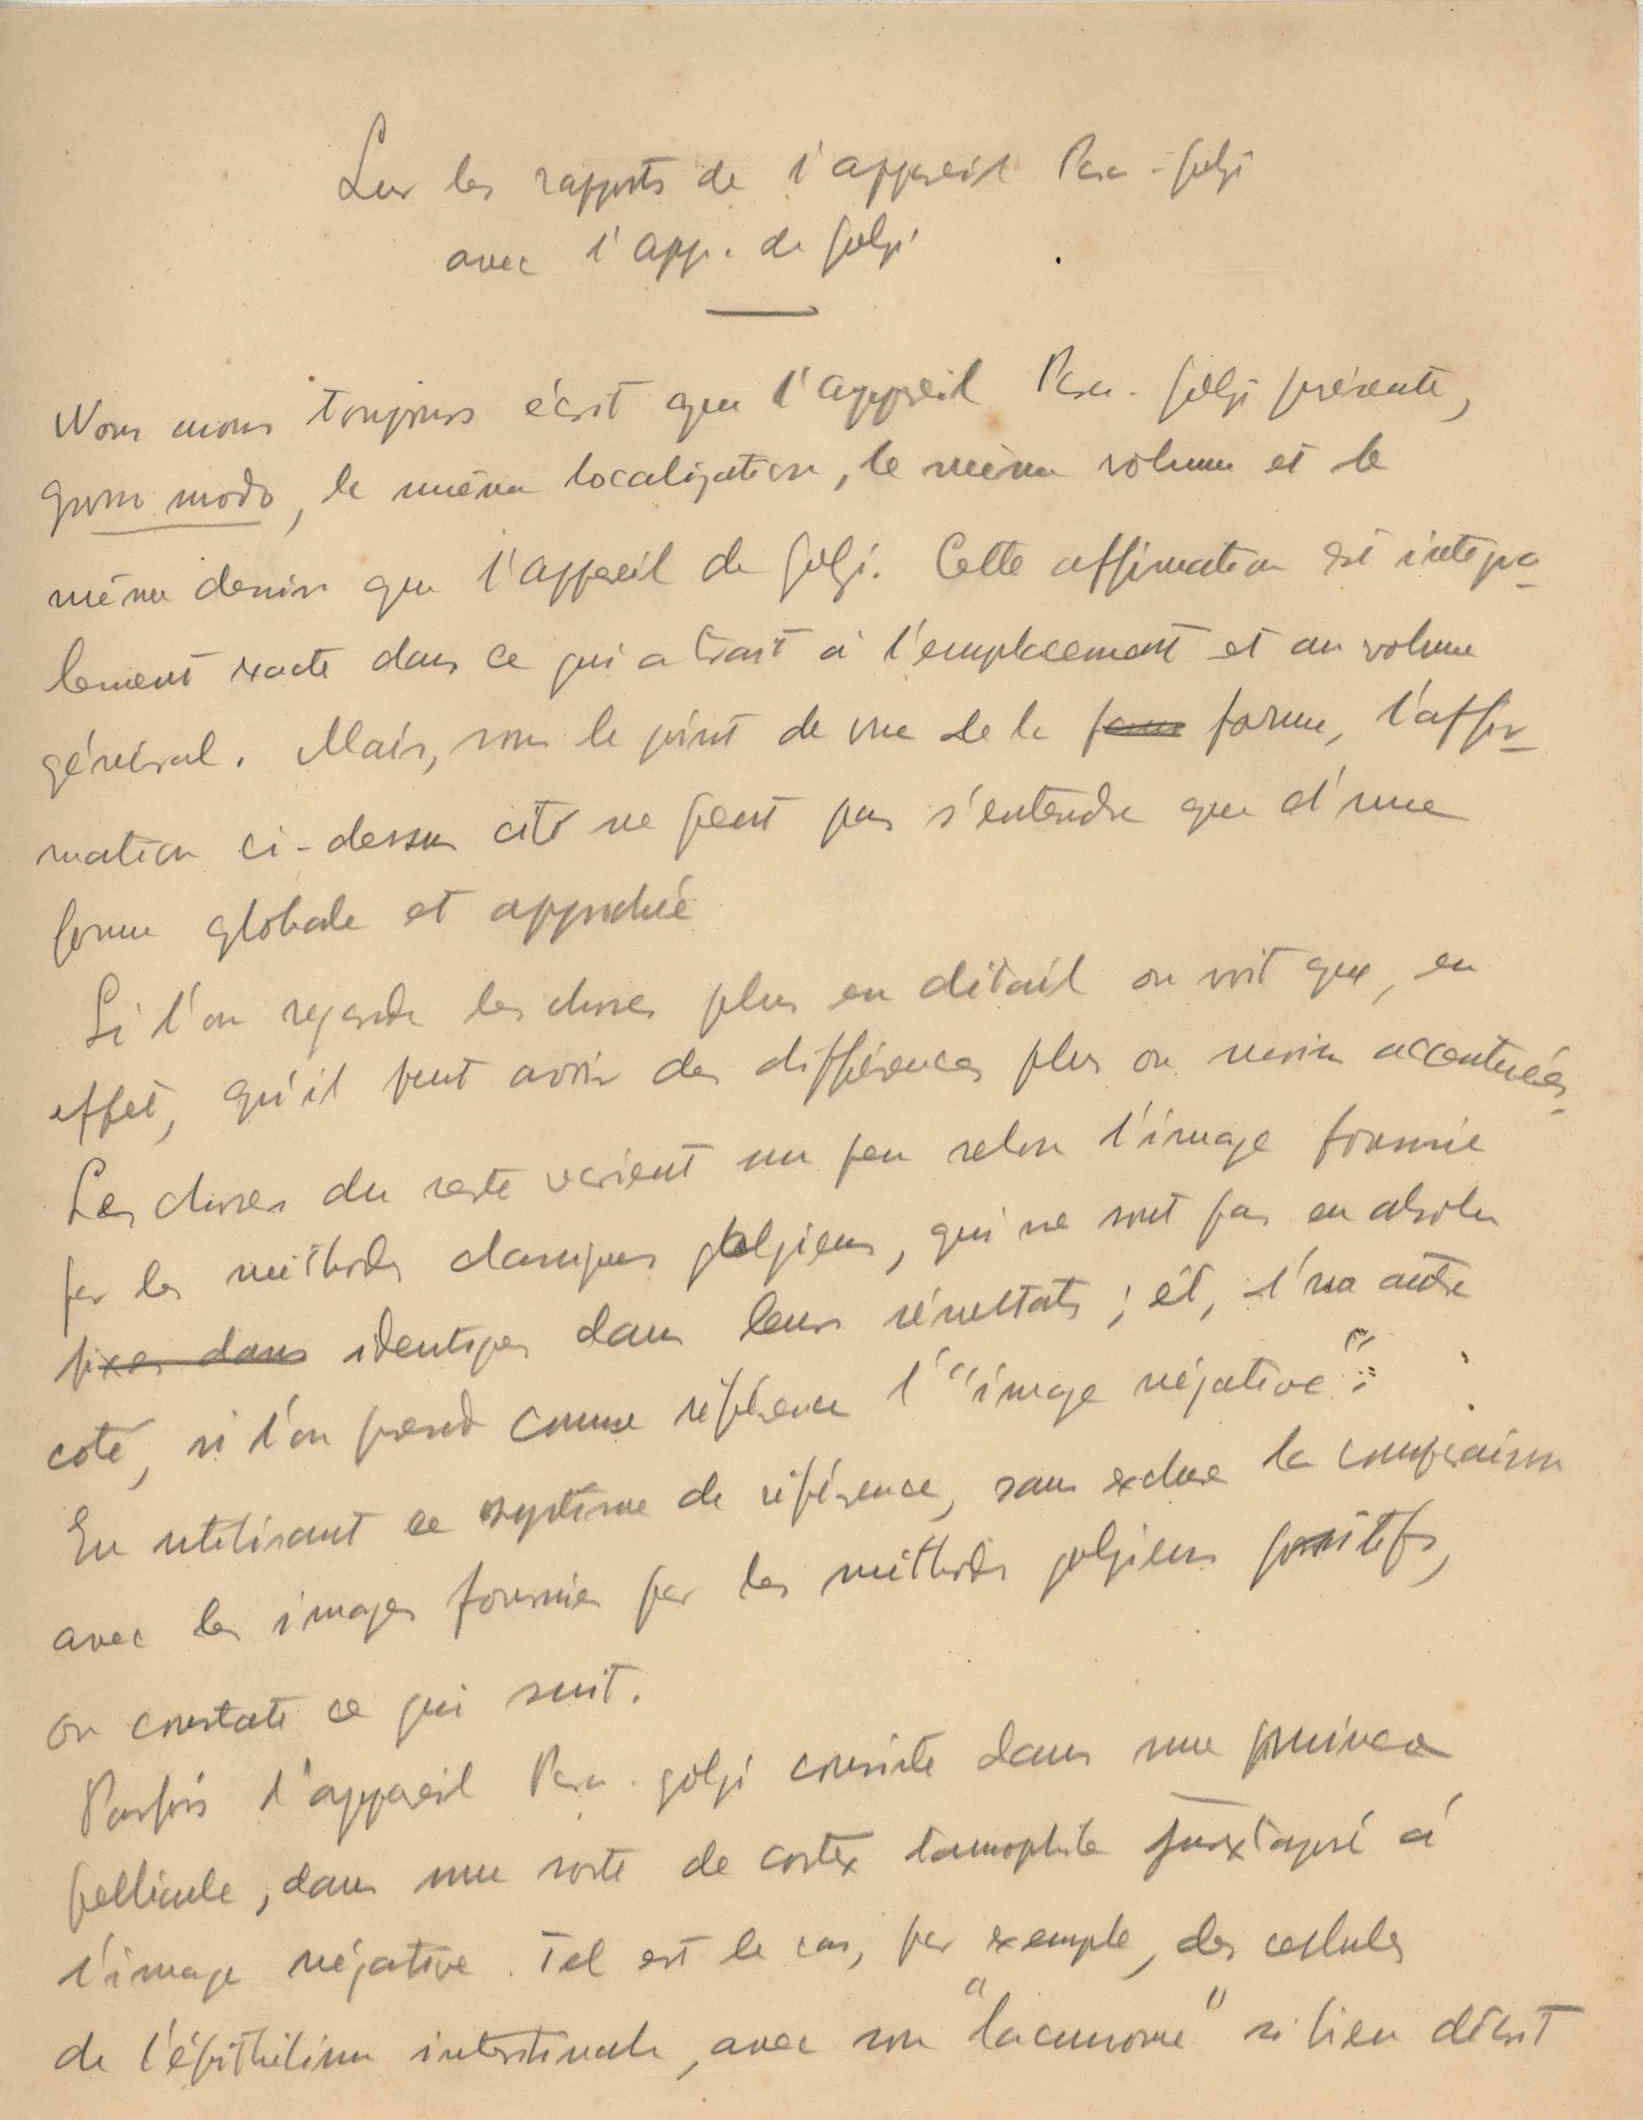 Sur les rapports de l'appareil Para-Golgi
avec l'app. de Golgi
Nous avons toujours écrit que l'appareil Para-Golgi présente,
grosso modo, la même localisation, le même volume et le
même dessin que l'appareil de Golgi. Cette affirmation est intégra-
lement exacte dans ce qui a trait à l'emplacement et au volume
général. Mais, sous le point de vue de la forme, l'affir-
mation ci-dessus cité ne peut pas s'entendre que d'une
forme globale et approchée
Si l'on regarde les choses plus en détail on voit que, en
effet, qu'il peut avoir des différences plus ou moins accentuées.
Les choses du reste varient un peu selon l'image fournie
par les méthodes classiques golgiens, qui ne sont pas en absolu
fixes dans identiques dans leurs résultats; et, d'un autre
coté, si l'on prend comme référence l'"image négative".
En utilisant ce système de référence, sans exclure la comparaison
avec les images fournies par les méthodes golgiens positifs,
on constate ce qui suit.
Parfois l'appareil Para-golgi consiste dans une mince
pellicule, dans une sorte de cortex tannophile juxtaposé à
l'image négative. Tel est le cas, par exemple, des cellules
de l'épithélium intestinale, avec son "lacunome" si bien décrit